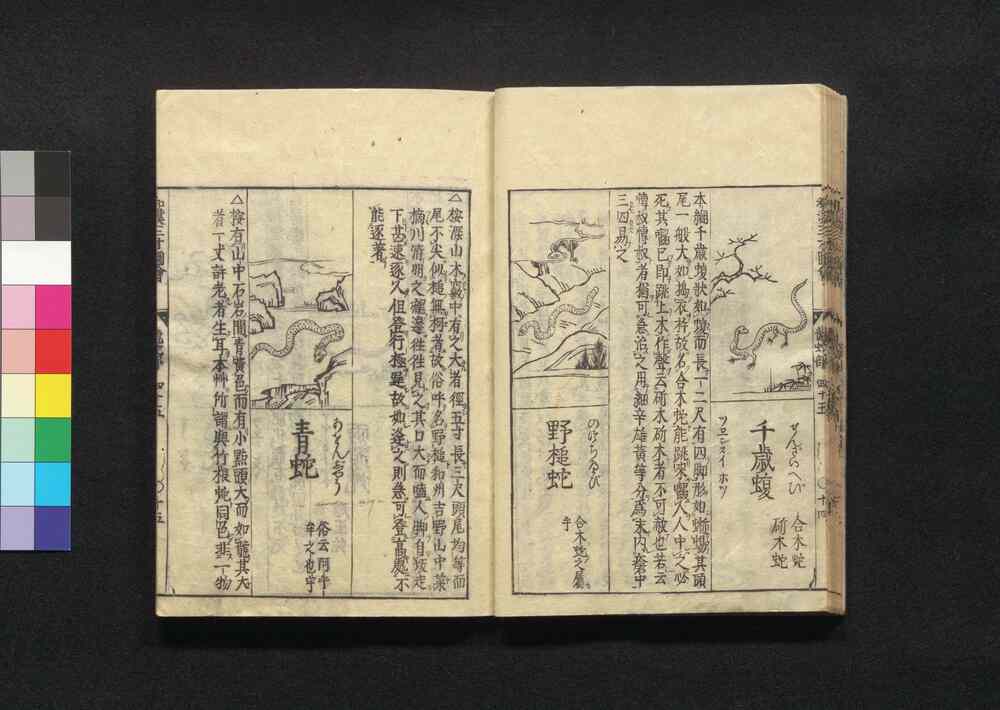 千歳蝮
合木蛇
斫木蛇
本綱千歳蝮狀如蝮而長一二尺有四脚形如蜥蜴其頭
尾一般大如搗衣杵故名合木蛇能跳來囓人人中之必
死其囓已即跳上木作聲云斫木斫木者不可救也若云
博叔博叔者猶可急治之用細辛雄黄等分爲末内瘡中
三四易之
のつちへび
野槌蛇
合木蛇之屬
乎
△按深山木竅中有之大者徑五寸長三尺頭尾均等而
尾不尖似槌無柄者故俗呼名野槌和州吉野山中菜
摘川清明之瀧邊徃徃見之其口大而嚙人脚自坂走
下甚速逐人但登行極遲故如逢之則急可登高處不
能逐著
青蛇
△按有山中石岩間青黄色而有小點頭大而如龍其大
者一丈許老者生耳本艸所謂與竹根蛇同色非一物